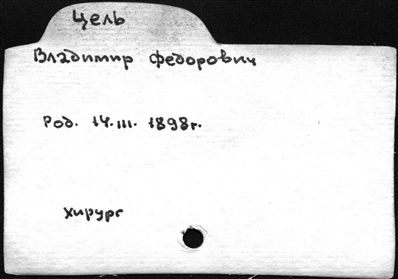 Цель
Владимир Федорович
Род. 14.III. 1898г.
хирург